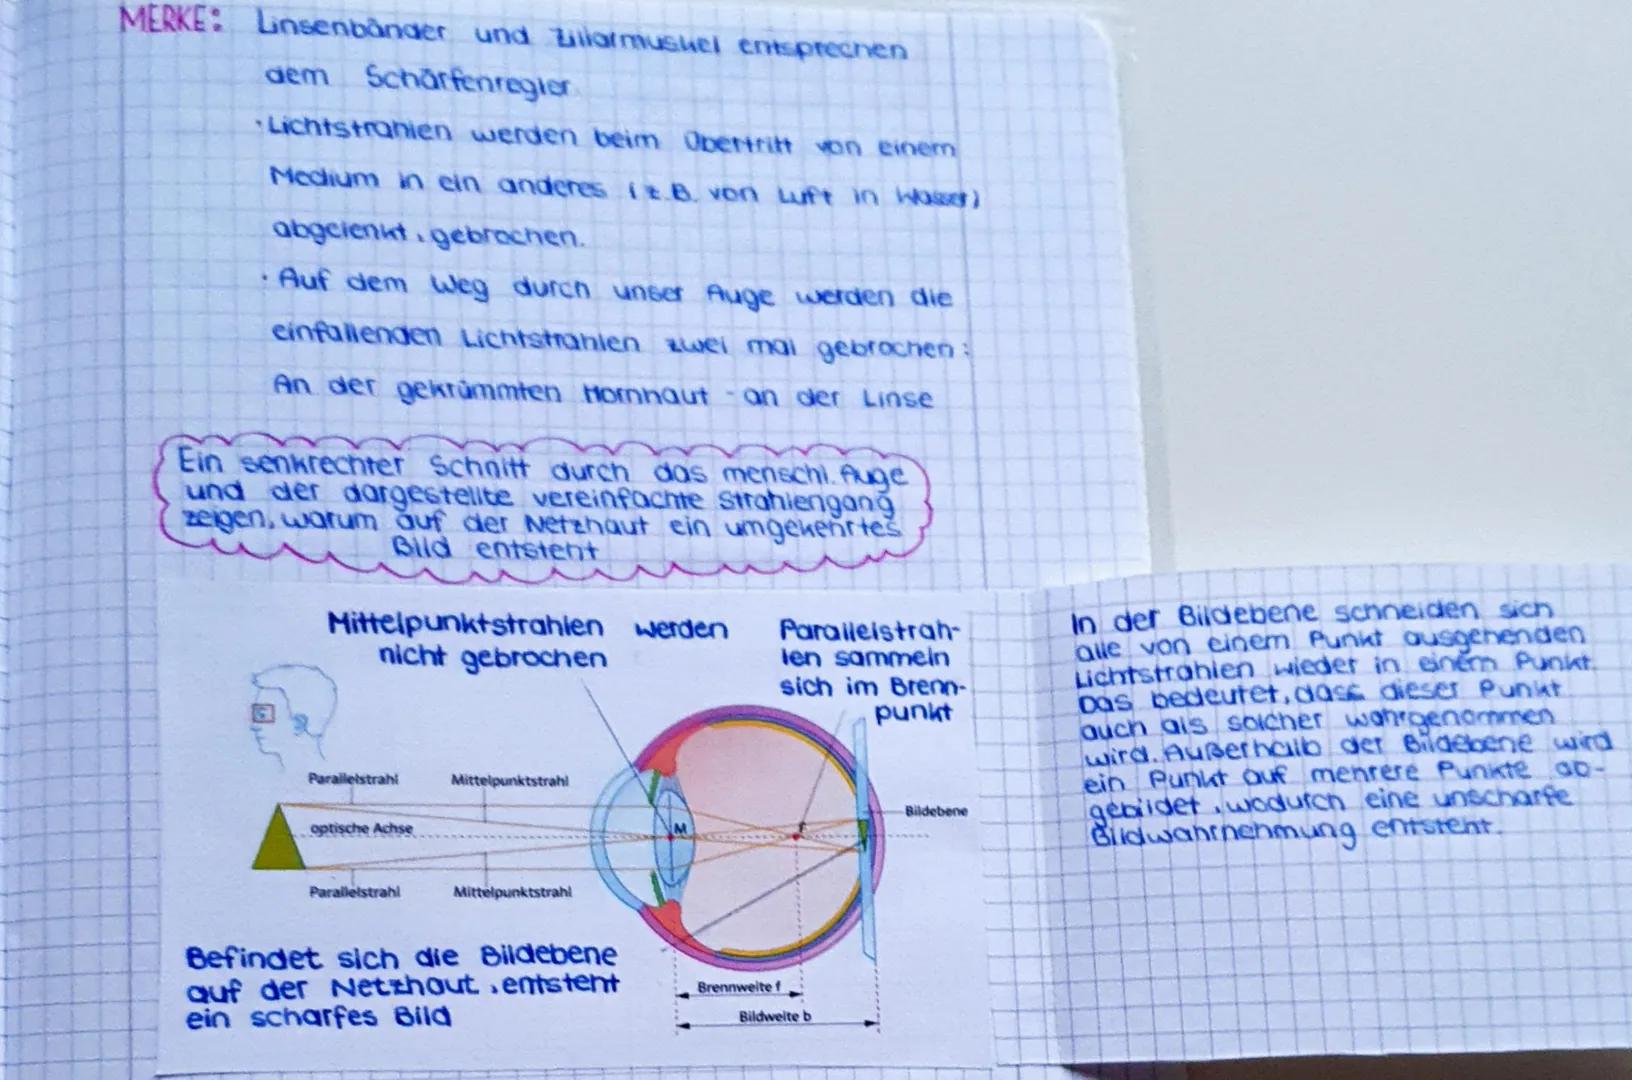 MERKE: Linsenbänder und Ziliarmuskel entsprechen
dem Schärfenregler
· Lichtstrahlen werden beim Übertritt von einem
Medium in ein anderes (z.B. von Luft in Wasser)
abgelenkt, gebrochen.
· Auf dem Weg durch unser Auge werden die
einfallenden Lichtstrahlen zwei mal gebrochen:
An der gekrümmten Hornhaut - an der Linse
Ein senkrechter Schnitt durch das menschl. Auge
und der dargestellte vereinfachte Strahlengang
zeigen, warum auf der Netzhaut ein umgekehrtes
Bild entsteht
Mittelpunktstrahlen werden
nicht gebrochen
Parallelstrah-
len sammeln
sich im Brenn-
punkt
Parallelstrahl
Mittelpunktstrahl
optische Achse
M
F
Bildebene
Parallelstrahl
Mittelpunktstrahl
Befindet sich die Bildebene
auf der Netzhaut, entsteht
ein scharfes Bild
Brennweite f
Bildweite b
In der Bildebene schneiden sich
alle von einem Punkt ausgehenden
Lichtstrahlen wieder in einem Punkt.
Das bedeutet, dass dieser Punkt
auch als solcher wahrgenommen
wird. Außerhalb der Bildebene wird
ein Punkt auf mehrere Punkte ab-
gebildet, wodurch eine unscharfe
Bildwahrnehmung entsteht.